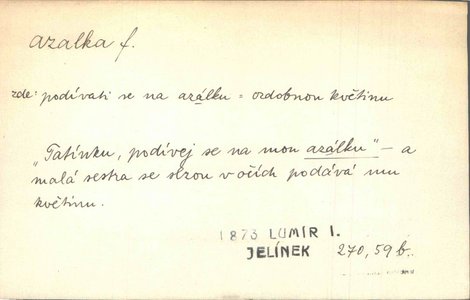 azalka f.
zde: podívati se na azálku = ozdobnou květinu
„Tatínku, podívej se na mou azálku" – a
malá sestra se slzou v očích podává mu
květinu.
1873 LUMÍR I.
JELÍNEK 270, 59 b.